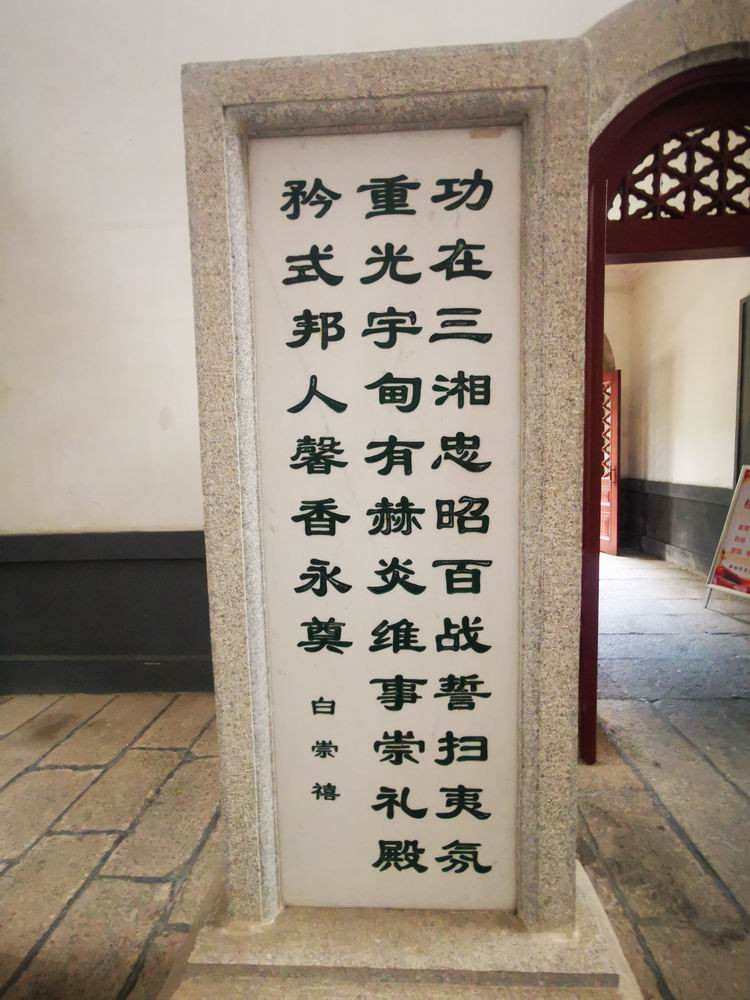 功在三湘忠昭百战誓扫夷氛
重光宇甸有赫炎维事崇礼殿
矜式邦人馨香永奠
白崇禧